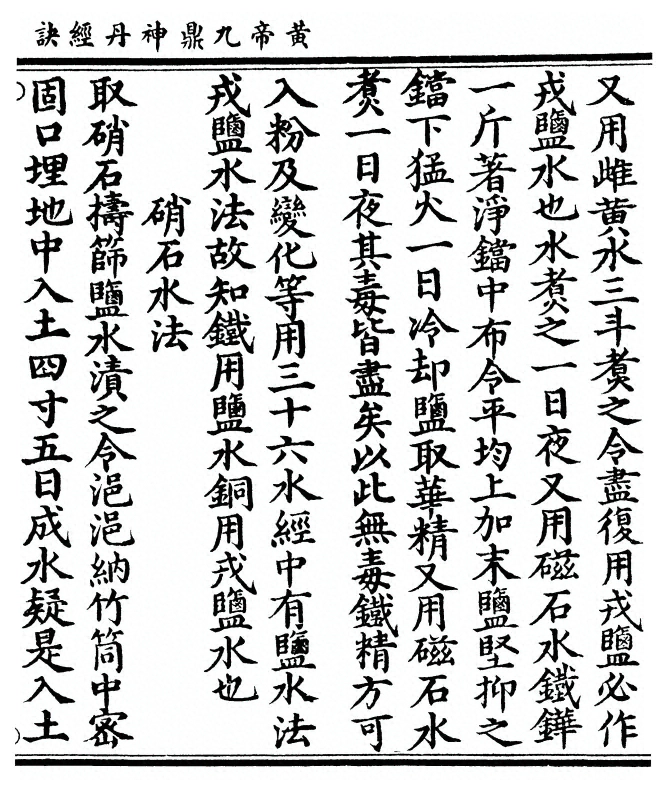 黃帝九鼎神丹經訣
又用雌黃水三斗煑之令盡復用戎鹽必作
戎鹽水也水煑之一日夜又用磁石水鐵鏵
一斤著淨鐺中布令平均上加末鹽堅抑之
鐺下猛火一日冷却鹽取華精又用磁石水
煑一日夜其毒皆盡矣以此無毒鐵精方可
入粉及變化等用三十六水經中有鹽水法
戎鹽水法故知鐵用鹽水銅用戎鹽水也
硝石水法
取硝石擣篩鹽水漬之令浥浥納竹筒中密
固口埋地中入土四寸五日成水疑是入土